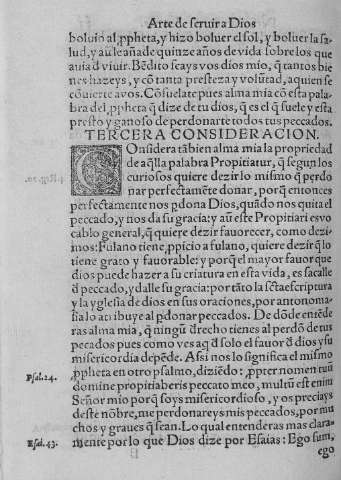 Arte de seruir a Dios
boluio al ,ppheta, y hizo boluer el sol, y boluer la sa-
lud, y auſ le añade quinze años de vida sobre los que
auia d̄ viuir. Bēdito seays vos dios mio, q̄ tantos bie
nes hazeys, y cō tanta presteza y volūtad, a quien se
cōuierte a vos. Cōsuelate pues alma mia cō esta pala
bra del ,ppheta q̄ dize de tu dios, q̄ es el q̄ suele y esta
presto y ganoso de perdonarte todos tus peccados.
TERCERA CONSIDERACION.
COnsidera tābien alma mia la propriedad
de aq̄lla palabra Propitiatur, q̄ segun los
curiosos quiere dezir lo mismo q̄ p̱erdo
nar perfectamēte donar, porq̄ entonces
perfectamente nos p̱dona Dios, quādo nos quita el
peccado, y nos da su gracia: y aū este Propitiari es vo
cablo general, q̄ quiere dezir fauorecer, como dezi-
mos: Fulano tiene ,ppicio a fulano, quiere dezir q̄ lo
tiene grato y fauorable: y porq̄ el mayor fauor que
dios puede hazer a su criatura en esta vida, es sacalle
d̄ peccado, y dalle su gracia: por tāto la sc̄ta escriptura
y la yglesia de dios en sus oraciones, por antonoma-
sia lo atribuye al p̱donar peccados. De dōde entiēde
ras alma mia, q̄ ningū d̄recho tienes al perdō de tus
pecados pues como ves aq̄ d̄ solo el fauor d̄ dios y su
misericordia depēde. Assi nos lo significa el mismo
Psal. 24. ,ppheta en otro psalmo, diziēdo: ,ppter nomen tuū
domine propitiaberis peccato meo, multū est enim
Señor mio porq̄ soys misericordioso, y os preciays
deste nōbre, me perdonareys mis peccados, por mu
chos y graues q̄ sean. Lo qual entenderas mas clara-
Esai. 43. mente por lo que Dios dize por Esaias: Ego sum,
ego